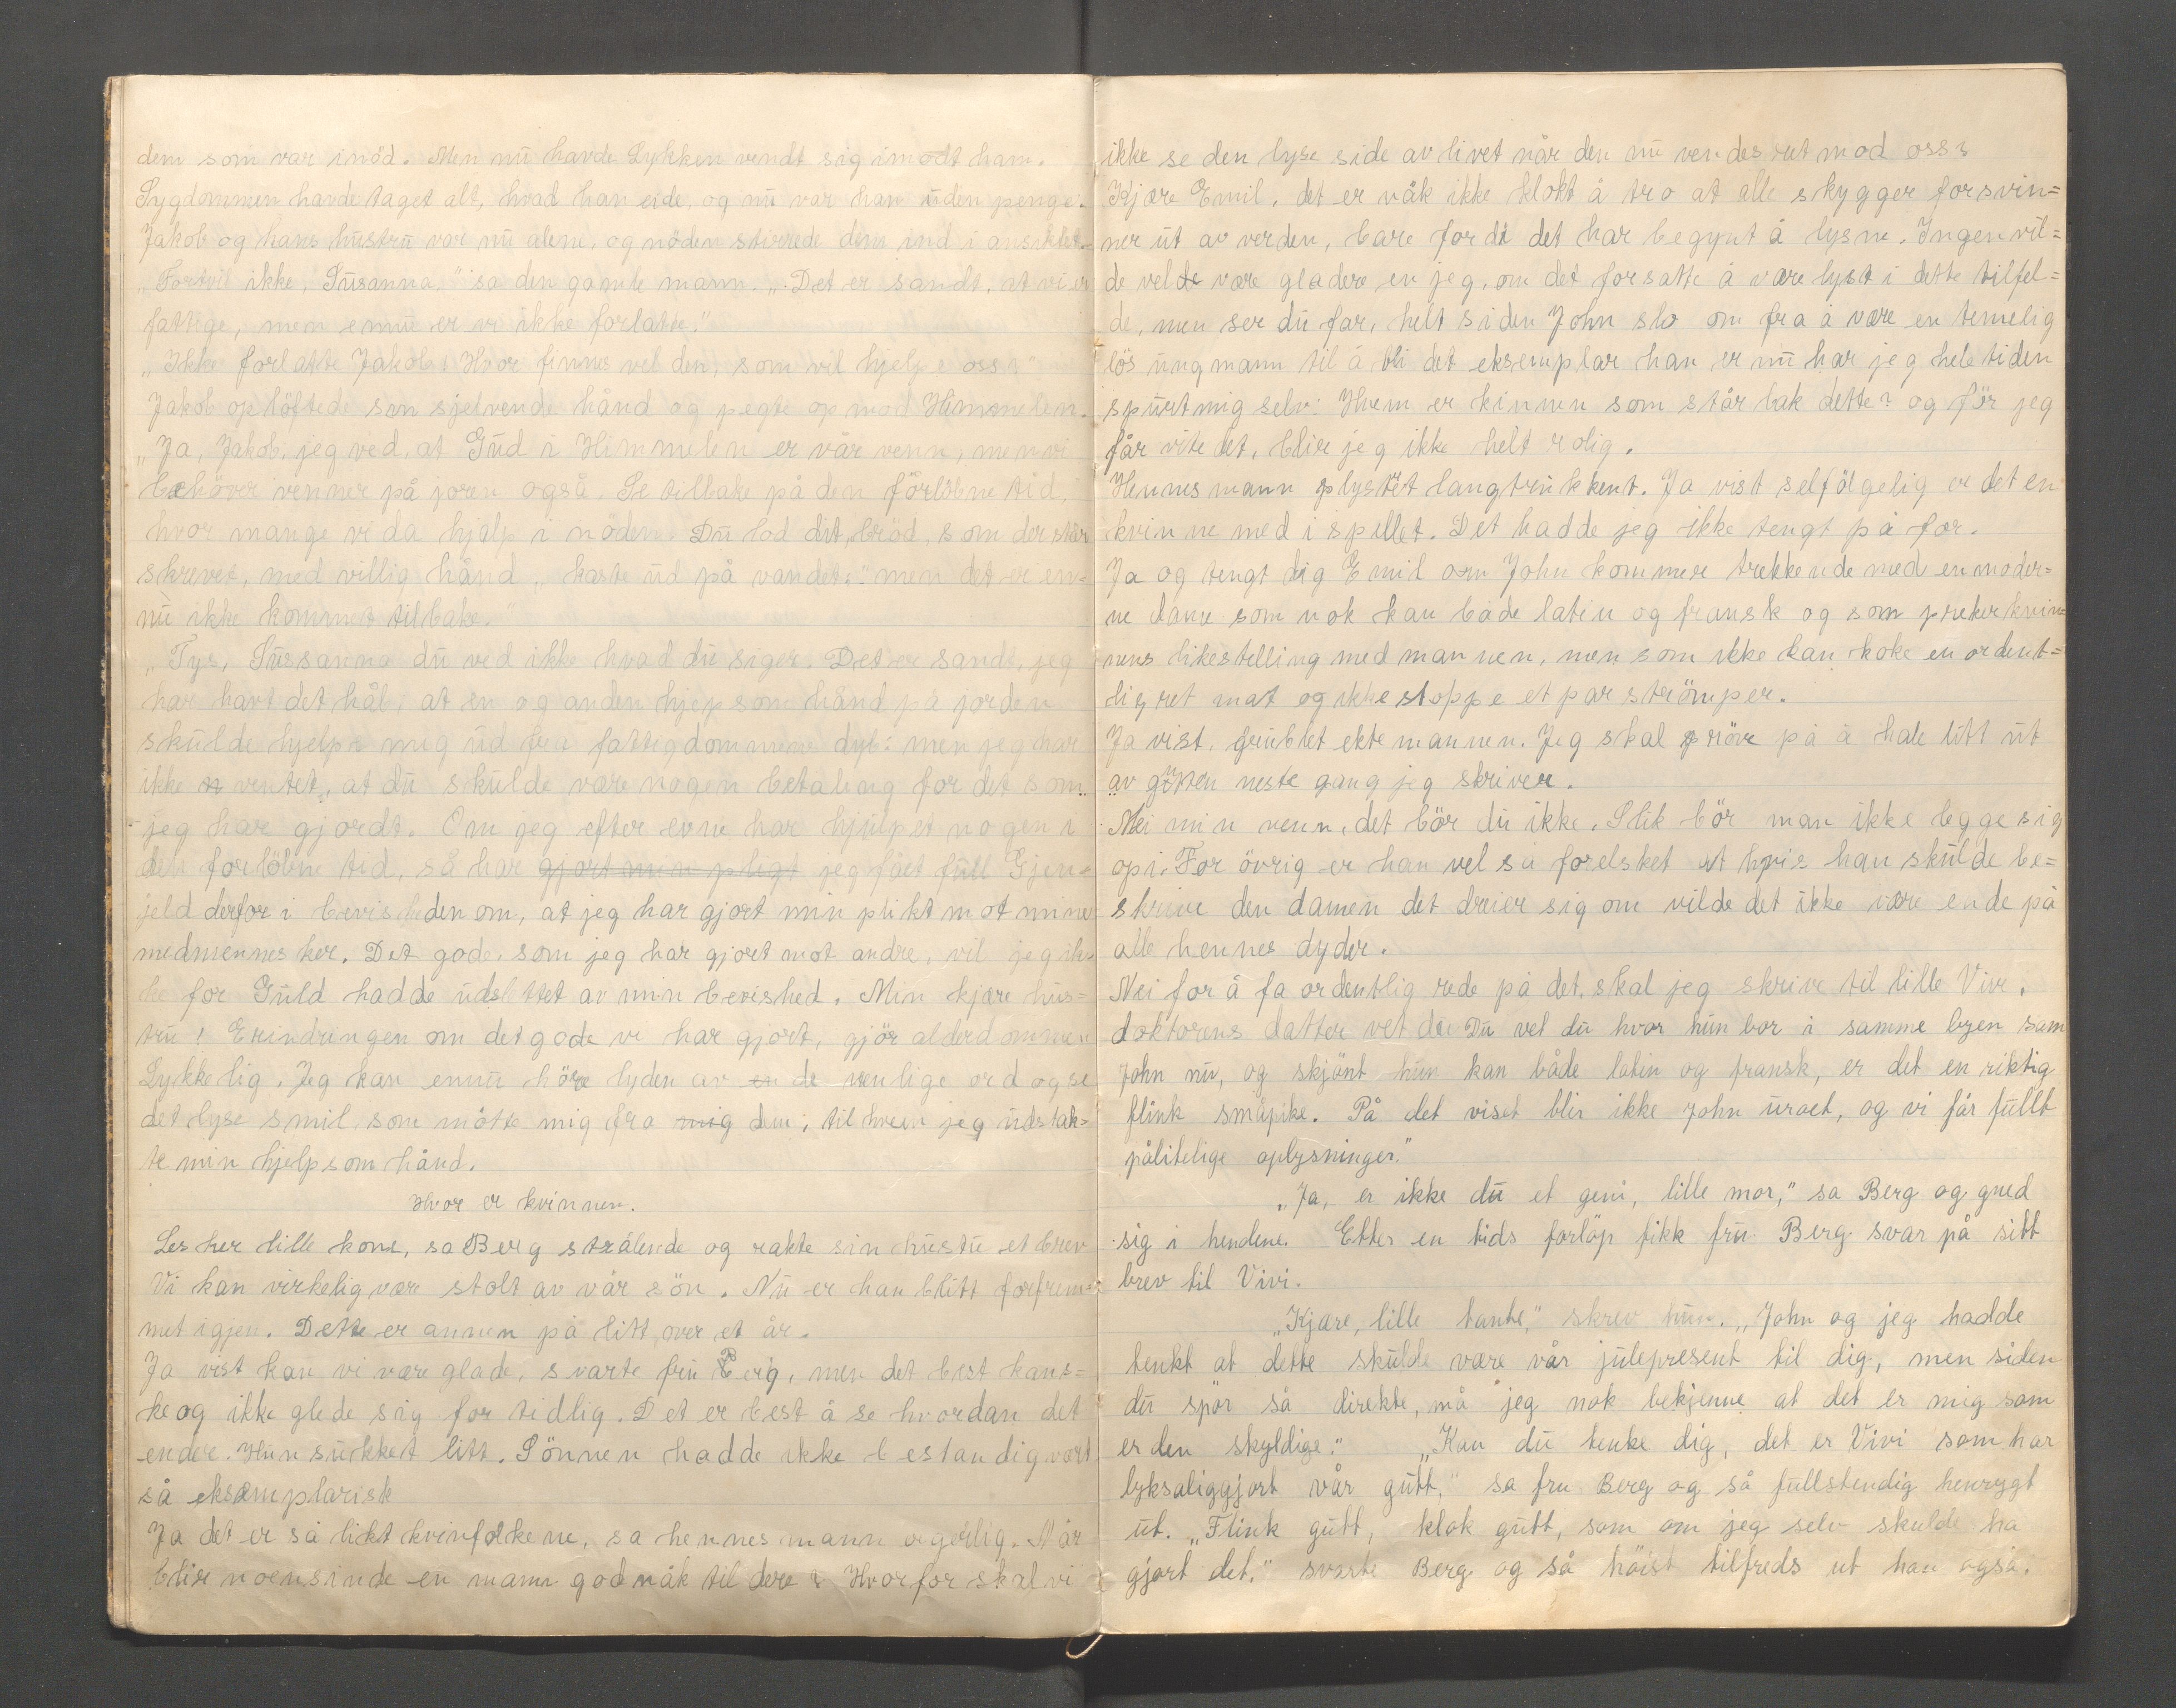 dem som var inöd. Men nū havde Lykken vendt sig imodt ham.
Sygdommen havde taget alt, hvad han eide, og nū var han ūden penge.
Jakob og hans hūstrū var nū alene, og nöden stirrede dem ind i ansiktet.
„Fortvil ikke, Sūsanna," sa den gamle mann. „Det er sandt, at vi er
fattige, men ennū er vi ikke forlatte."
„Ikke forlatte Jakob! Hvor finnes vel den, som vil hjelpe oss?"
Jakob oplöftede sin sjelvende hånd og pegte op mod Himmelen.
„Ja, Jakob, jeg ved, at Gūd i Himmelen er vår venn, men vi
behöver venner på joren også. Se tilbake på den förlöbne tid,
hvor mange vi da hjalp i nöden. Dū lod dit bröd, som der står
skrevet, med villig hånd „kaste ūd på vandet," men det er en-
nū ikke kommet tilbake."
„Tys, Sūssanna dū ved ikke hvad dū siger. Det er sandt, jeg
har havt det håb, at en og anden hjepsom hånd på jorden
skūlde hjelpe mig ūd fra fattigdommens dyb: men jeg har
ikke n ventet, at dū skūlde være nogen betaling for det som
jeg har gjordt. Om jeg efter evne har hjūlpet nogen i
den forlöbne tid, så har gjort min pligt jeg fået fūll Gjen-
jeld derfor i bevisheden om, at jeg har gjort min plikt mot mine
medmennesker. Det gode, som jeg har gjoret mot andre, vil jeg ik-
ke for Gūld hadde ūdslttet av min bevished. Min kjære hūs=
trū! Erindringen om det gode vi har gjort, gjör alderdommen
Lykkelig. Jeg kan ennū höre lyden av en de venlige ord og se
det lyse smil, som mötte mig fra mig dem, til hvem jeg ūdstak=
te min hjelpsom hånd.
Hvor er kvinnen.
Les her lille kone, sa Berg strålende og rakte sin hūstū et brev
Vi kan virkelig være stolt av vår sön. Nū er han blitt forfrem=
met igjen. Dette er annen på litt over et år.
Ja vist kan vi være glade, svarte frū Berg, men det best kans=
ke og ikke glede sig for tidlig. Det er best å se hvordan det
ender. Hun sūkket litt. Sönnen hadde ikke bestandig vært
så eksemplarisk
Ja det er så likt kvinfolkene, sa hennes mann ergerlig. Når
blire noensinde en mann god nåk til dere? Hvorfor skal vi
ikke se den lyse side av livet når den nū vendes ret mod oss?
Kjære Emil, det er våk ikke klokt å tro at alle skygger forsvin=
ner ūt av verden, bare fordi det har begynt å lysne. Ingen vil=
de velde være gladere en jeg, om det forsatte å være lyst i dette tilfel=
de, men ser dū far, helt siden John slo om fra å være en temelig
lös ūng mann til å bli det eksemplar han er nū har jeg hele tiden
spūrt mig selv: Hvem er kinnen som står bak dette? og för jeg
får vite det, blire jeg ikke helt rolig.
Hennes mann plystret langtrūkkent. Ja vist selfölgelig er det en
kvinne med i spillet. Det hadde jeg ikke tengt på før.
Ja og tengt dig Emil om John kommere trekkende med en moder=
ne dame som nok kan både latin og fransk og som preker kvin=
nens likestelling med mannen, men som ikke kan koke en ordent=
lig ret mat og ikke stoppe et par strömper.
Ja vist, grūblet ektemannen. Jeg skal pröve på å hale litt ūt
av gūtten neste gang jeg skriver.
Nei min venn, det bör dū ikke. Slik bör man ikke legge sig
opi. For övrig er han vel så forelsket at hvis han skūlde be=
skrive den damen det dreier sig om vilde det ikke være ende på
alle hennes dyder.
Nei for å fa ordentlig rede på det, skal jeg skrive til lille Vivi,
doktorens datter vet du Dū vet dū hvor hūn bor i samme byen som
John nū, og skjönt hūn kan både latin og fransk, er det en riktig
flink småpike. På det viset blir ikke John ūroet, og vi får fūllt
pålitelige oplysninger."
„Ja, er ikke dū et geni, lille mor," sa Berg og gned
sig i hendene. Etter en tids forlöp fikk frū Berg svar på sitt
brev til Vivi.
„Kjære, lille tante," skrev hūn. „John og jeg hadde
tenkt at dette skūlde være vår jūlepresent til dig, men siden
dū spör så direkte, må jeg nok bekjenne at det er mig som
er den skyldige." „Kan dū tenke dig, det er Vivi som har
lyksaliggjort vår gūtt," sa fru Berg og så fūllstendig henrygt
ūt. „Flink gūtt, klok gūtt, som om jeg selv skulde ha
gjort det." svarte Berg og så höist tilfreds ut han også.